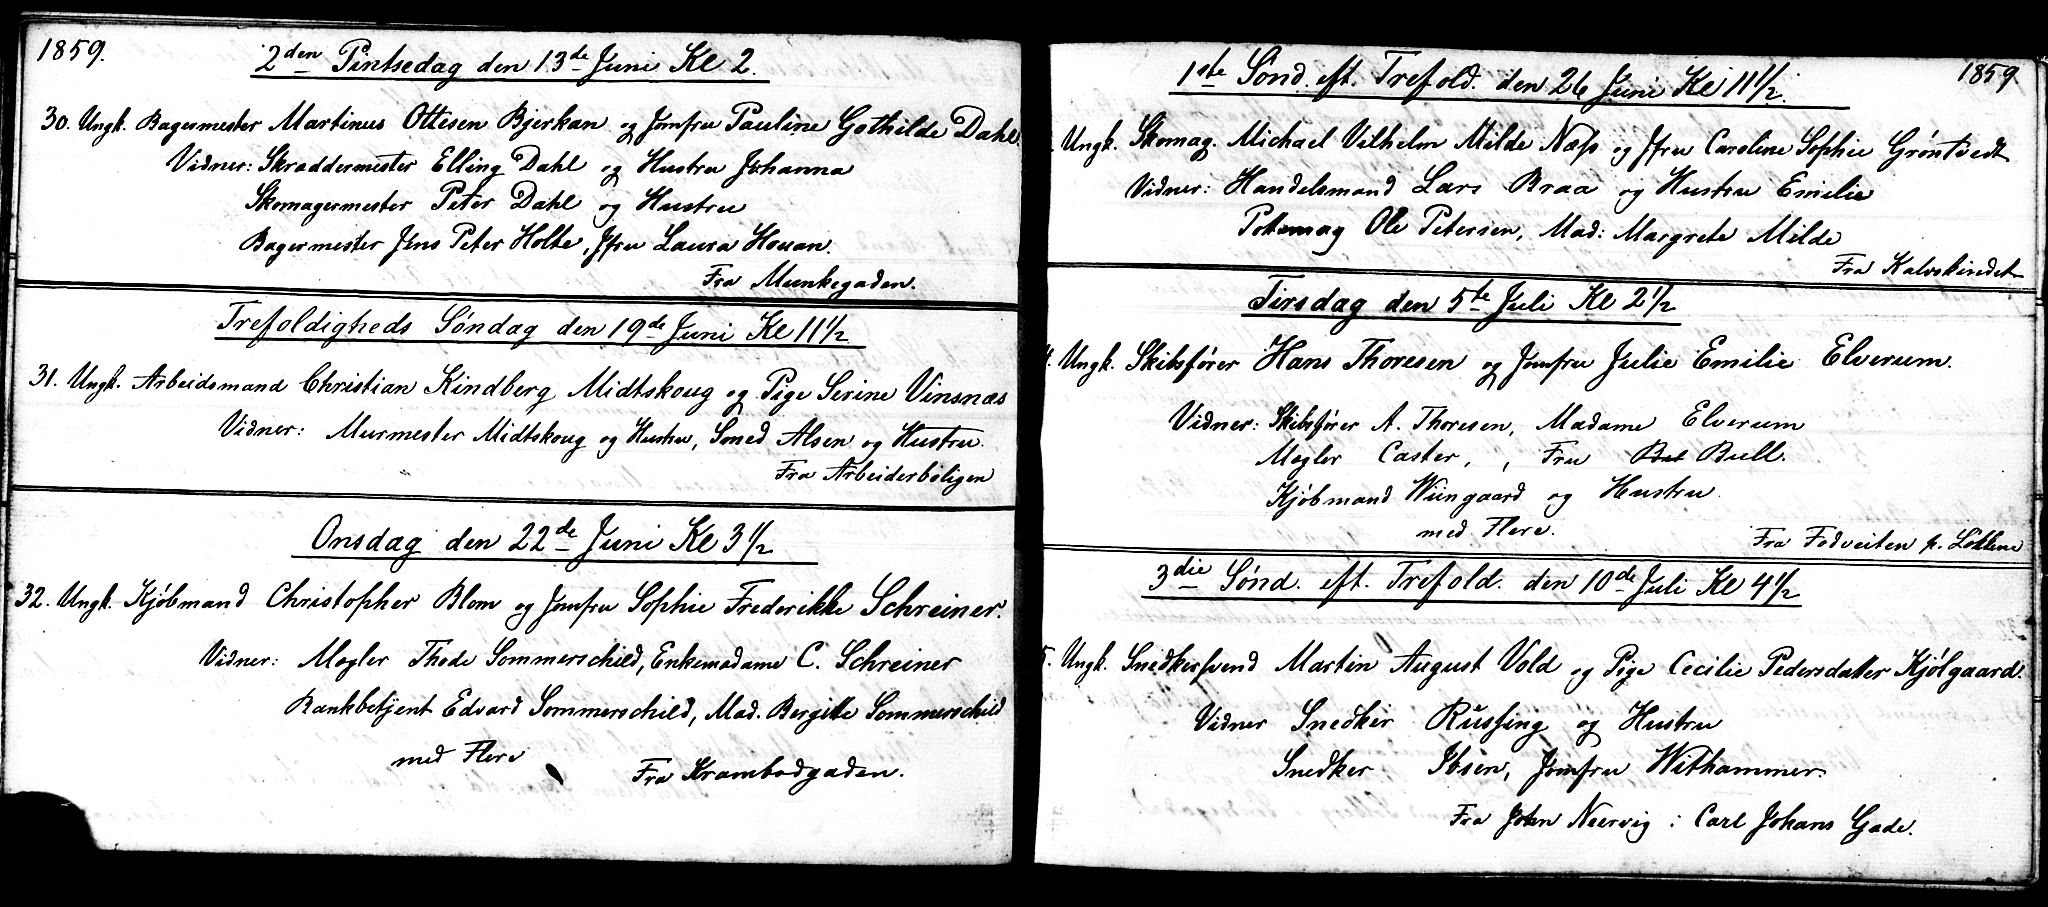 1859.
2den Pintsedag den 13de Juni Kl 2.
30. Ungk. Bagermester Martinus Ottesen Bjerkan og Jomfru Pauline Gothilde Dahl.
Vidner: Skræddermester Elling Dahl og Hustru Johanna
Skomagermester Peter Dahl og Hustru
Bagermester Jens Peter Holte, Jfru Laura Houan.
Fra Munkegaden.
Trefoldigheds Søndag den 19de Juni Kl 11 1/2
31. Ungk. Arbeidsmand Christian Kindberg Midtskoug og Pige Serine Vinsnæs
Vidner: Murmester Midtskoug og Hustru, Smed Alsen og Hustru.
Fra Arbeiderboligen
Onsdag den 22de Juni Kl 3 1/2
32. Ungk. Kjøbmand Christopher Blom og Jomfru Sophie Frederikke Schreiner.
Vidner: Mægler Thode Sommerschild, Enkemadame C. Schreiner
Bankbetjent Edvard Sommerschild, Mad. Bergitte Sommerschild
med Flere
Fra Krambodgaden.
1859
1ste Sønd. eft. Trefold. den 26 Juni Kl 11 1/2.
Ungk. Skomag. Michael Vilhelm Milde Næss og Jfru Caroline Sophie Grøntvedt
Vidner: Handelsmand Lars Braa og Hustru Emilie
Pottemag Ole Petersen, Mad: Margrete Milde
Fra Kalvskindet
Tirsdag den 5te Juli Kl 2 1/2
4. Ungk. Skibsfører Hans Thoresen og Jomfru Julie Emilie Elverum.
Vidner: Skibsfører A. Thoresen, Madame Elverum
Mægler Caster, , Fru Bull.
Kjøbmand Wiingaard og Hustru.
med Flere.
Fra Fedveiten p.
3die Sønd. eft. Trefold. den 10de Juli Kl 4 1/2
5. Ungk. Snedkersvend Martin August Vold og Pige Cecilie Pedersdatter Kjølgaard.
Vidner Snedker Rüssing og Hustru
Snedker Ibsen, Jomfru Withammer.
Fra John Neervig i Carl Johans Gade.